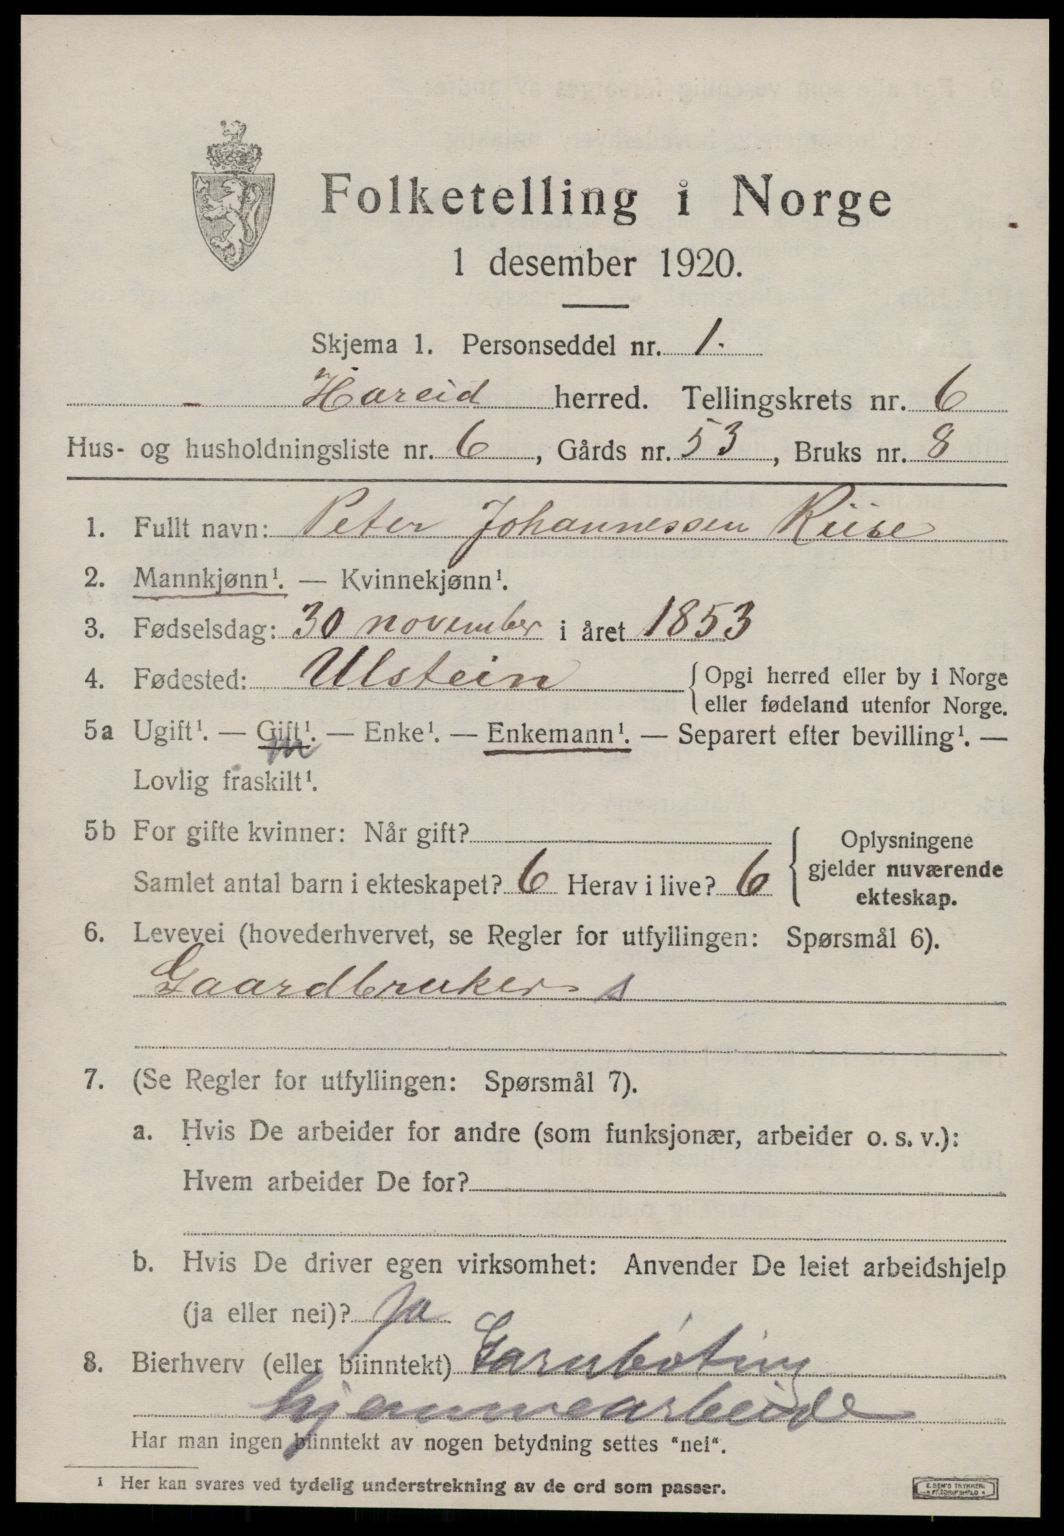 Folketelling i Norge
1 desember 1920.
Skjema 1. Personseddel nr. 1.
Hareid herred. Tellingskrets nr. 6
Hus- og husholdningsliste nr. 6, Gårds nr. 53, Bruks nr. 8
1. Fullt navn: Peter Johannessen Riise
2. Mannkjønn¹. — Kvinnekjønn¹.
3. Fødselsdag: 30 november i året 1853
4. Fødested: Ulstein {Opgi herred eller by i Norge
eller fødeland utenfor Norge.
5a Ugift¹. — Gift¹. — Enke¹. — Enkemann¹. — Separert efter bevilling¹. —
m
Lovlig fraskilt¹.
5b For gifte kvinner: Når gift?
Samlet antal barn i ekteskapet? 6 Herav i live? 6
{Oplysningene
gjelder nuværende
ekteskap.
6. Levevei (hovederhvervet, se Regler for utfyllingen: Spørsmål 6).
Gaardbruker s
7. (Se Regler for utfyllingen: Spørsmål 7).
a. Hvis De arbeider for andre (som funksjonær, arbeider o. s. v.):
Hvem arbeider De for?
b. Hvis De driver egen virksomhet: Anvender De leiet arbeidshjelp
(ja eller nei)? Ja
8. Bierhverv (eller biinntekt) Garnbøting
hjemmearbeide
Har man ingen biinntekt av nogen betydning settes "nei".
¹ Her kan svares ved tydelig understrekning av de ord som passer.